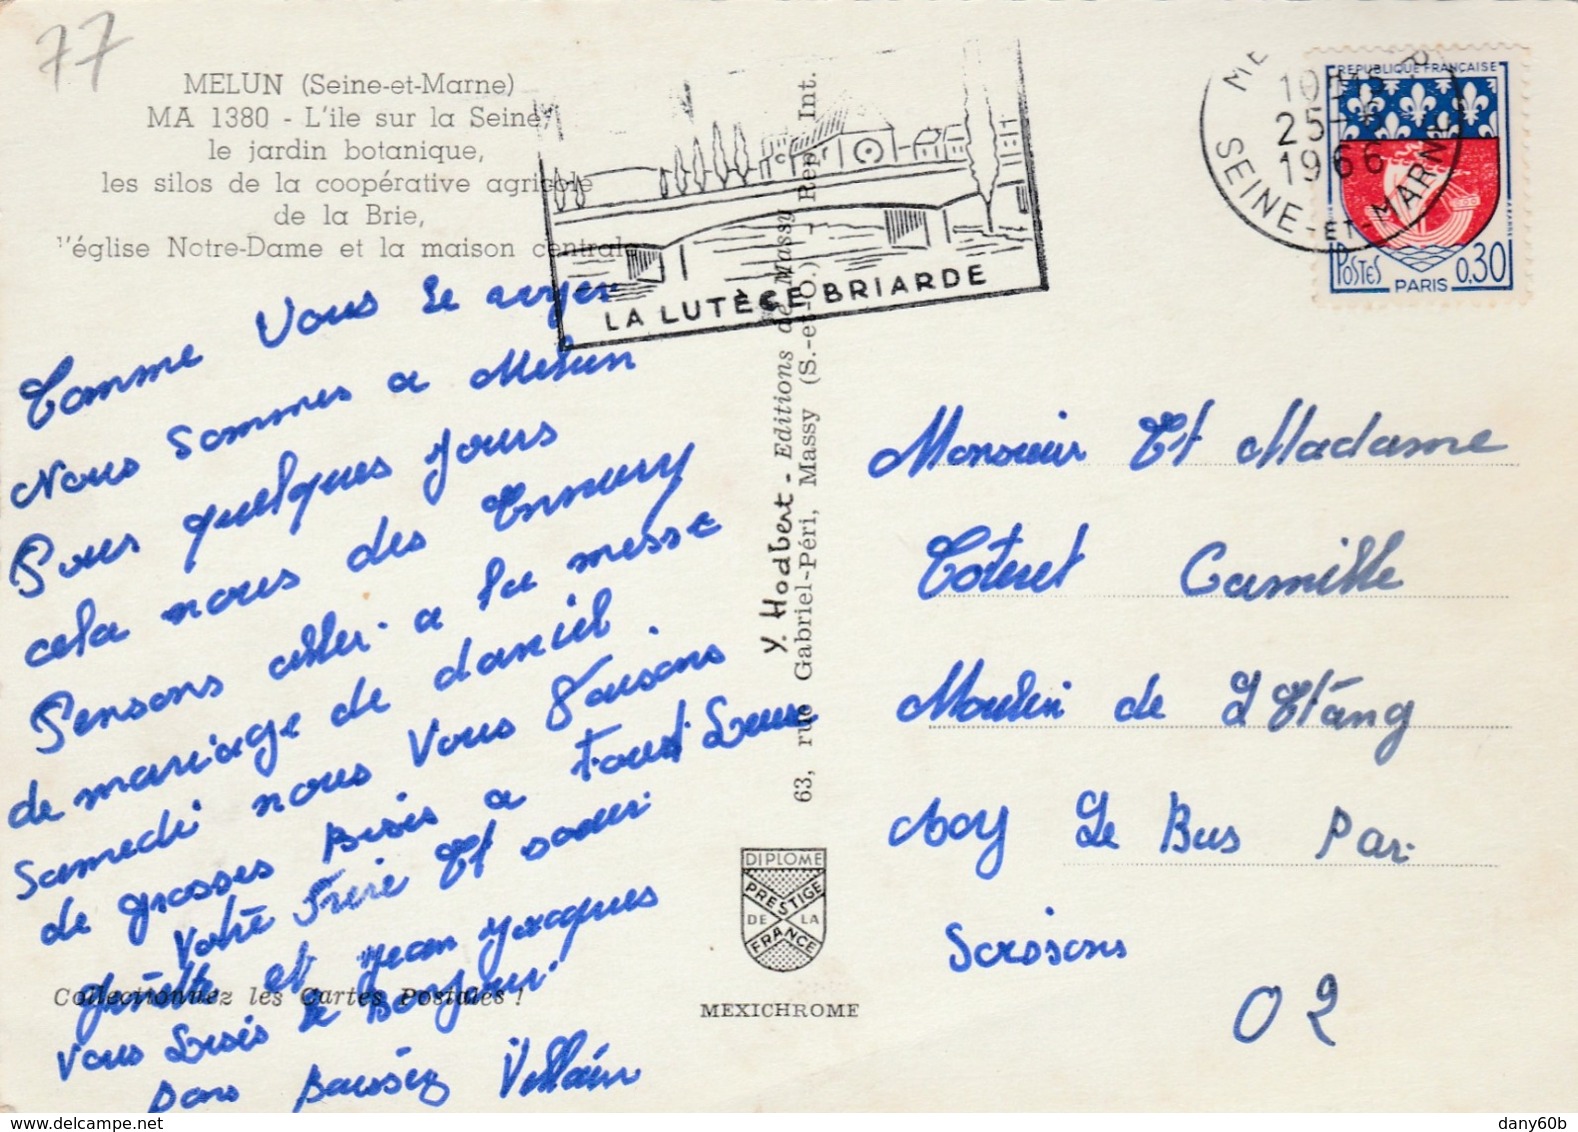 77
MELUN (Seine-et-Marne)
MA 1380 - L'ile sur la Seine,
le jardin botanique,
les silos de la coopérative agricole
de la Brie,
l'église Notre-Dame et la maison centrale
LA LUTÈCE BRIARDE
10H45
25-
1966
SEINE-ET-MARNE
REPUBLIQUE FRANÇAISE
POSTES
PARIS
0,30
Comme Vous Le
Nous Sommes a Melun
Pour quelques jours
cela nous des Ennuuy
Pensons aller a la messe
de mariage de daniel.
Samedi nous Vous Faisons
de grosses Bisis a Toust Deux
Votre Frere Et soeur
ginette et jean jacques
Vous Dusis le Bonjour
Bons Baissez Villain
Collectionnez les Cartes Postales !
Y. Hodbert - Editions de Massy
63, rue Gabriel-Péri, Massy (S.-et-O.) - Rep. Int.
DIPLOME
PRESTIGE
DE LA
FRANCE
MEXICHROME
Monsieur Et Madame
Coteret Camille
Moulin de L Etang
Acy Le Bus Par
Soissons
02
dany60b